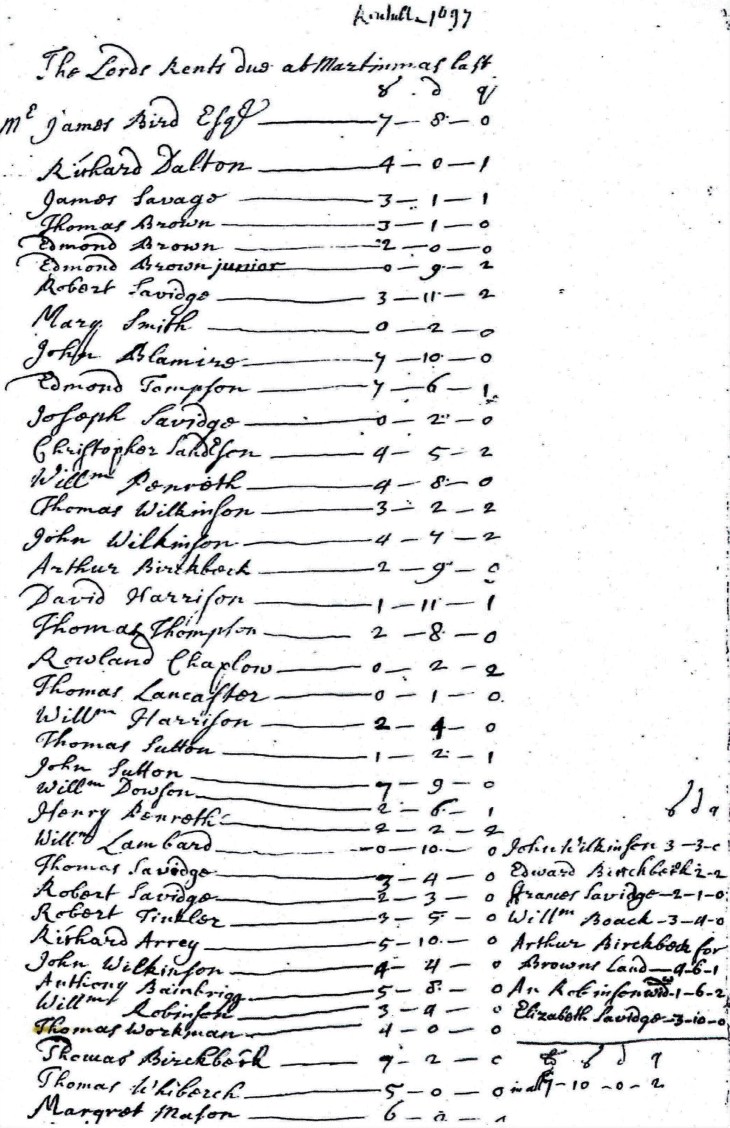 1697
The Lords Rents due at Martinmas last
s d q
Mr James Bird Esqr 7 - 8 - 0
Richard Dalton 4 - 0 - 1
James Savage 3 - 1 - 1
Thomas Brown 3 - 1 - 0
Edmond Brown 2 - 0 - 0
Edmond Brown junior 0 - 9 - 2
Robert Savidge 3 - 11 - 2
Mary Smith 0 - 2 - 0
John Blamire 7 - 10 - 0
Edmond Tompson 7 - 6 - 1
Joseph Savidge 0 - 2 - 0
Christopher 4 - 5 - 2
Willm Penreth 4 - 8 - 0
Thomas Wilkinson 3 - 2 - 2
John Wilkinson 4 - 7 - 2
Arthur Birckbeck 2 - 9 - 0
David Harrison 1 - 11 - 1
Thomas Thompson 2 - 8 - 0
Rowland Chaplow 0 - 2 - 2
Thomas Lancaster 0 - 1 - 0
Willm Harrison 2 - 4 - 0
Thomas Sutton 1 - 2 - 1
John Sutton 7 - 9 - 0
Willm Dowson 2 - 6 - 1
Henry Penreth 2 - 2 - 2
Willm Lambard 0 - 10 - 0
Thomas Savidge - 4 - 0
Robert Savidge 2 - 3 - 0
Robert Tinkler 3 - 5 - 0
Richard Arrey 5 - 10 - 0
John Wilkinson 4 - 4 - 0
Anthony Bainbrigg 5 - 8 - 0
Willm Robinson 3 - 9 - 0
Thomas Workman 4 - 0 - 0
Thomas Birckbeck - 2 - 0
Thomas 5 - 0 - 0
Margret Mason 6 -
s d q
John Wilkinson 3 - 3 - 0
Edward Birckbeck 2 - 2
Frances Savidge - 2 - 1 - 0
Willm Boack - 3 - 4 - 0
Arthur Birckbeck for
Browns Land - 6 - 1
An Robinson wid - 1 - 6 - 2
Elizabeth Savidge - 3 - 10 - 0
s d q
- 10 - 0 - 2